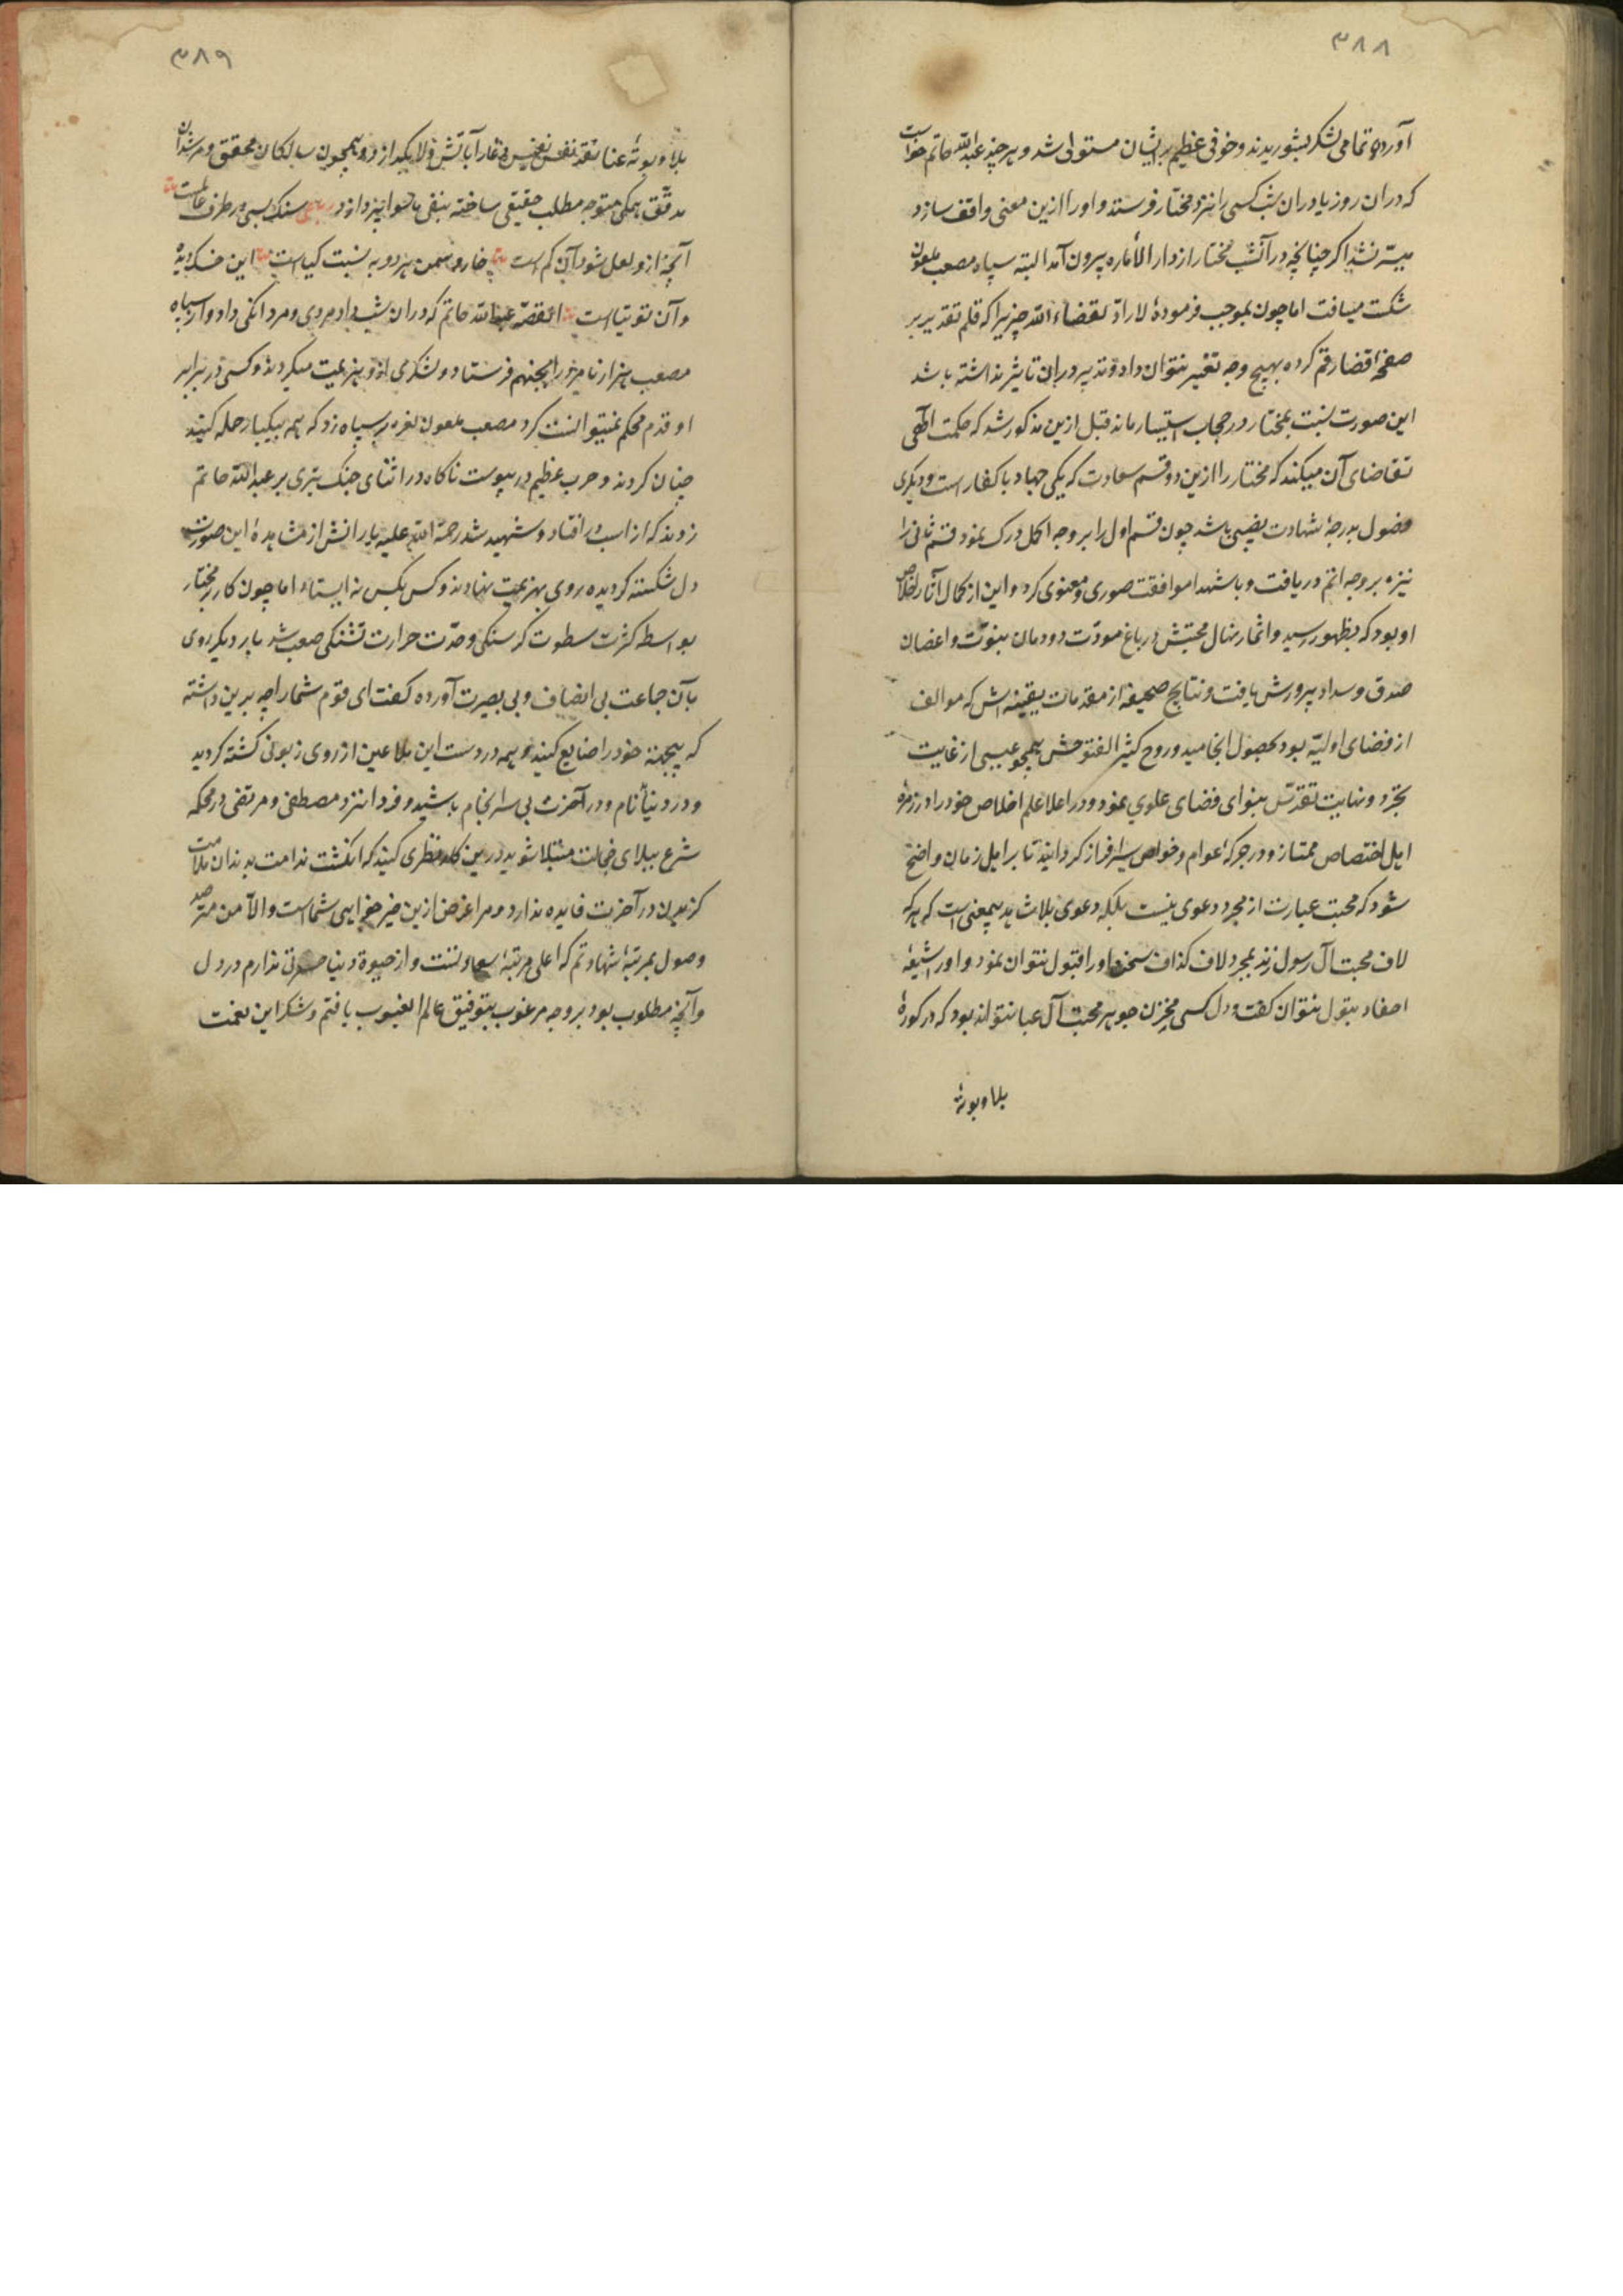 ۳۸۸
آورده تمامی لشکر بشوریدند و خوفی عظیم بر ایشان مستولی شد و هر چند عبدالله حاتم خواست
که در ان روز یا در ان شب کسی را نزد مختار فرستد و او را ازین معنی واقف سازد
میسر نشد اگر چنانچه در آنشب مختار از دار الأماره بیرون آمد البته سپاه مصعب ملعون
شکست مییافت اما چون بموجب فرمودۀ لا رادّ لقضاء الله چیزیرا که قلم تقدیر بر
صفحۀ قضا رقم کرده بهیچ وجه تغییر نتوان داد و تدبیر در ان تاثیر نداشته باشد
این صورت نسبت بمختار در حجاب استتار ماند قبل ازین مذکور شد که حکمت الهی
تقاضای آن میکند که مختار را ازین دو قسم سعادت که یکی جهاد با کفار است و دیگری
وصول بدرجۀ شهادت نصیبی باشد چون قسم اول را بر وجه اکمل درک نمود قسم ثانی را
نیز بر وجه اتم دریافت و با شهدا موافقت صوری و معنوی کرد و این از کمال آثار اخلاص
او بود که بظهور رسید و اثمار نهال محبتش در باغ مودّت دودمان نبوّت و اغصان
صدق و سداد پرورش یافت و نتایج صحیفه از مقدمات یقینیه اش که موالف
از قضای اولیّه بود بحصول انجامید و روح کثیر الفتوحش همچو عیسی از غایت
تجرّد و نهایت تقدّس بنوای فضای علوی نمود و در اعلا علم اخلاص خود را در زمرۀ
اهل اختصاص ممتاز و در جرکۀ اعوام و خواص سرافراز گردانید تا بر اهل زمان واضح
شود که محبت عبارت از مجرد دعوی نیست بلکه دعوی بلا شاهد بیمعنی است که هر که
لاف محبت آل رسول زند بمجرد لاف گذاف سخن او را قبول نتوان نمود و او را شیعۀ
احفاد بتول نتوان گفت و دل کسی مخزن جوهر محبت آل عبا نتواند بود که در کورۀ
بلا و بوتۀ
۳۸۹
بلا و بوتۀ عنا نقد نفس نفیس تمام آبآتش ولا بگدازد و همچون سالکان محقق و مرشدان
مدقّق همگی متوجه مطلب حقیقی ساخته بنفی ماسوا پردازد رباعی سنگ بسی در طرف عالمست
آنچه ازو لعل شود آن کم است خار و سمن هر دو به نسبت گیاست این خسک دیده
و آن توتیاست القصّه عبدالله حاتم که در ان شب داد مردی و مردانگی داد و از سپاه
مصعب هزار نامرد را بجهنم فرستاد و لشکری ازو هزیمت میکردند و کسی در برابر
او قدم محکم نمیتوانست کرد مصعب ملعون نعره بر سپاه زد که همه بیکبار حمله کنید
چنان کردند و حرب عظیم در پیوست ناگاه در اثنای جنگ تیری بر عبدالله حاتم
زدند که از اسب در افتاد و شهید شد رحمة الله علیه یارانش از مشاهدۀ این صورت
دل شکسته گردیده روی بهزیمت نهادند و کس بکس نه ایستاد اما چون کار بر مختار
بواسطه کثرت سطوت گرسنگی و حدّت حرارت تشنگی صعب شد بار دیگر روی
بآن جماعت بی انصاف و بی بصیرت آورده گفت ای قوم شما را چه برین داشته
که بیجهت خود را ضایع کنید و همه در دست این ملاعین از روی زبونی کشته گردید
و در دنیا نام و در آخرت بی سرانجام باشید و فردا نزد مصطفی و مرتضی در محکمه
شرع ببلای خجالت مبتلا شوید درین کلمه نظری کنید که انگشت ندامت بدندان ملامت
گزیدن در آخرت فایده ندارد و مرا غرض ازین خیر خواهی شماست و الا من مترصد
وصول بمرتبۀ شهادتم که اعلی مرتبۀ سعادتست و از حیوة دنیا حسرتی ندارم در دل
و آنچه مطلوب بود بر وجه مرغوب بتوفیق عالم الغیوب یافتم و شکر این نعمت